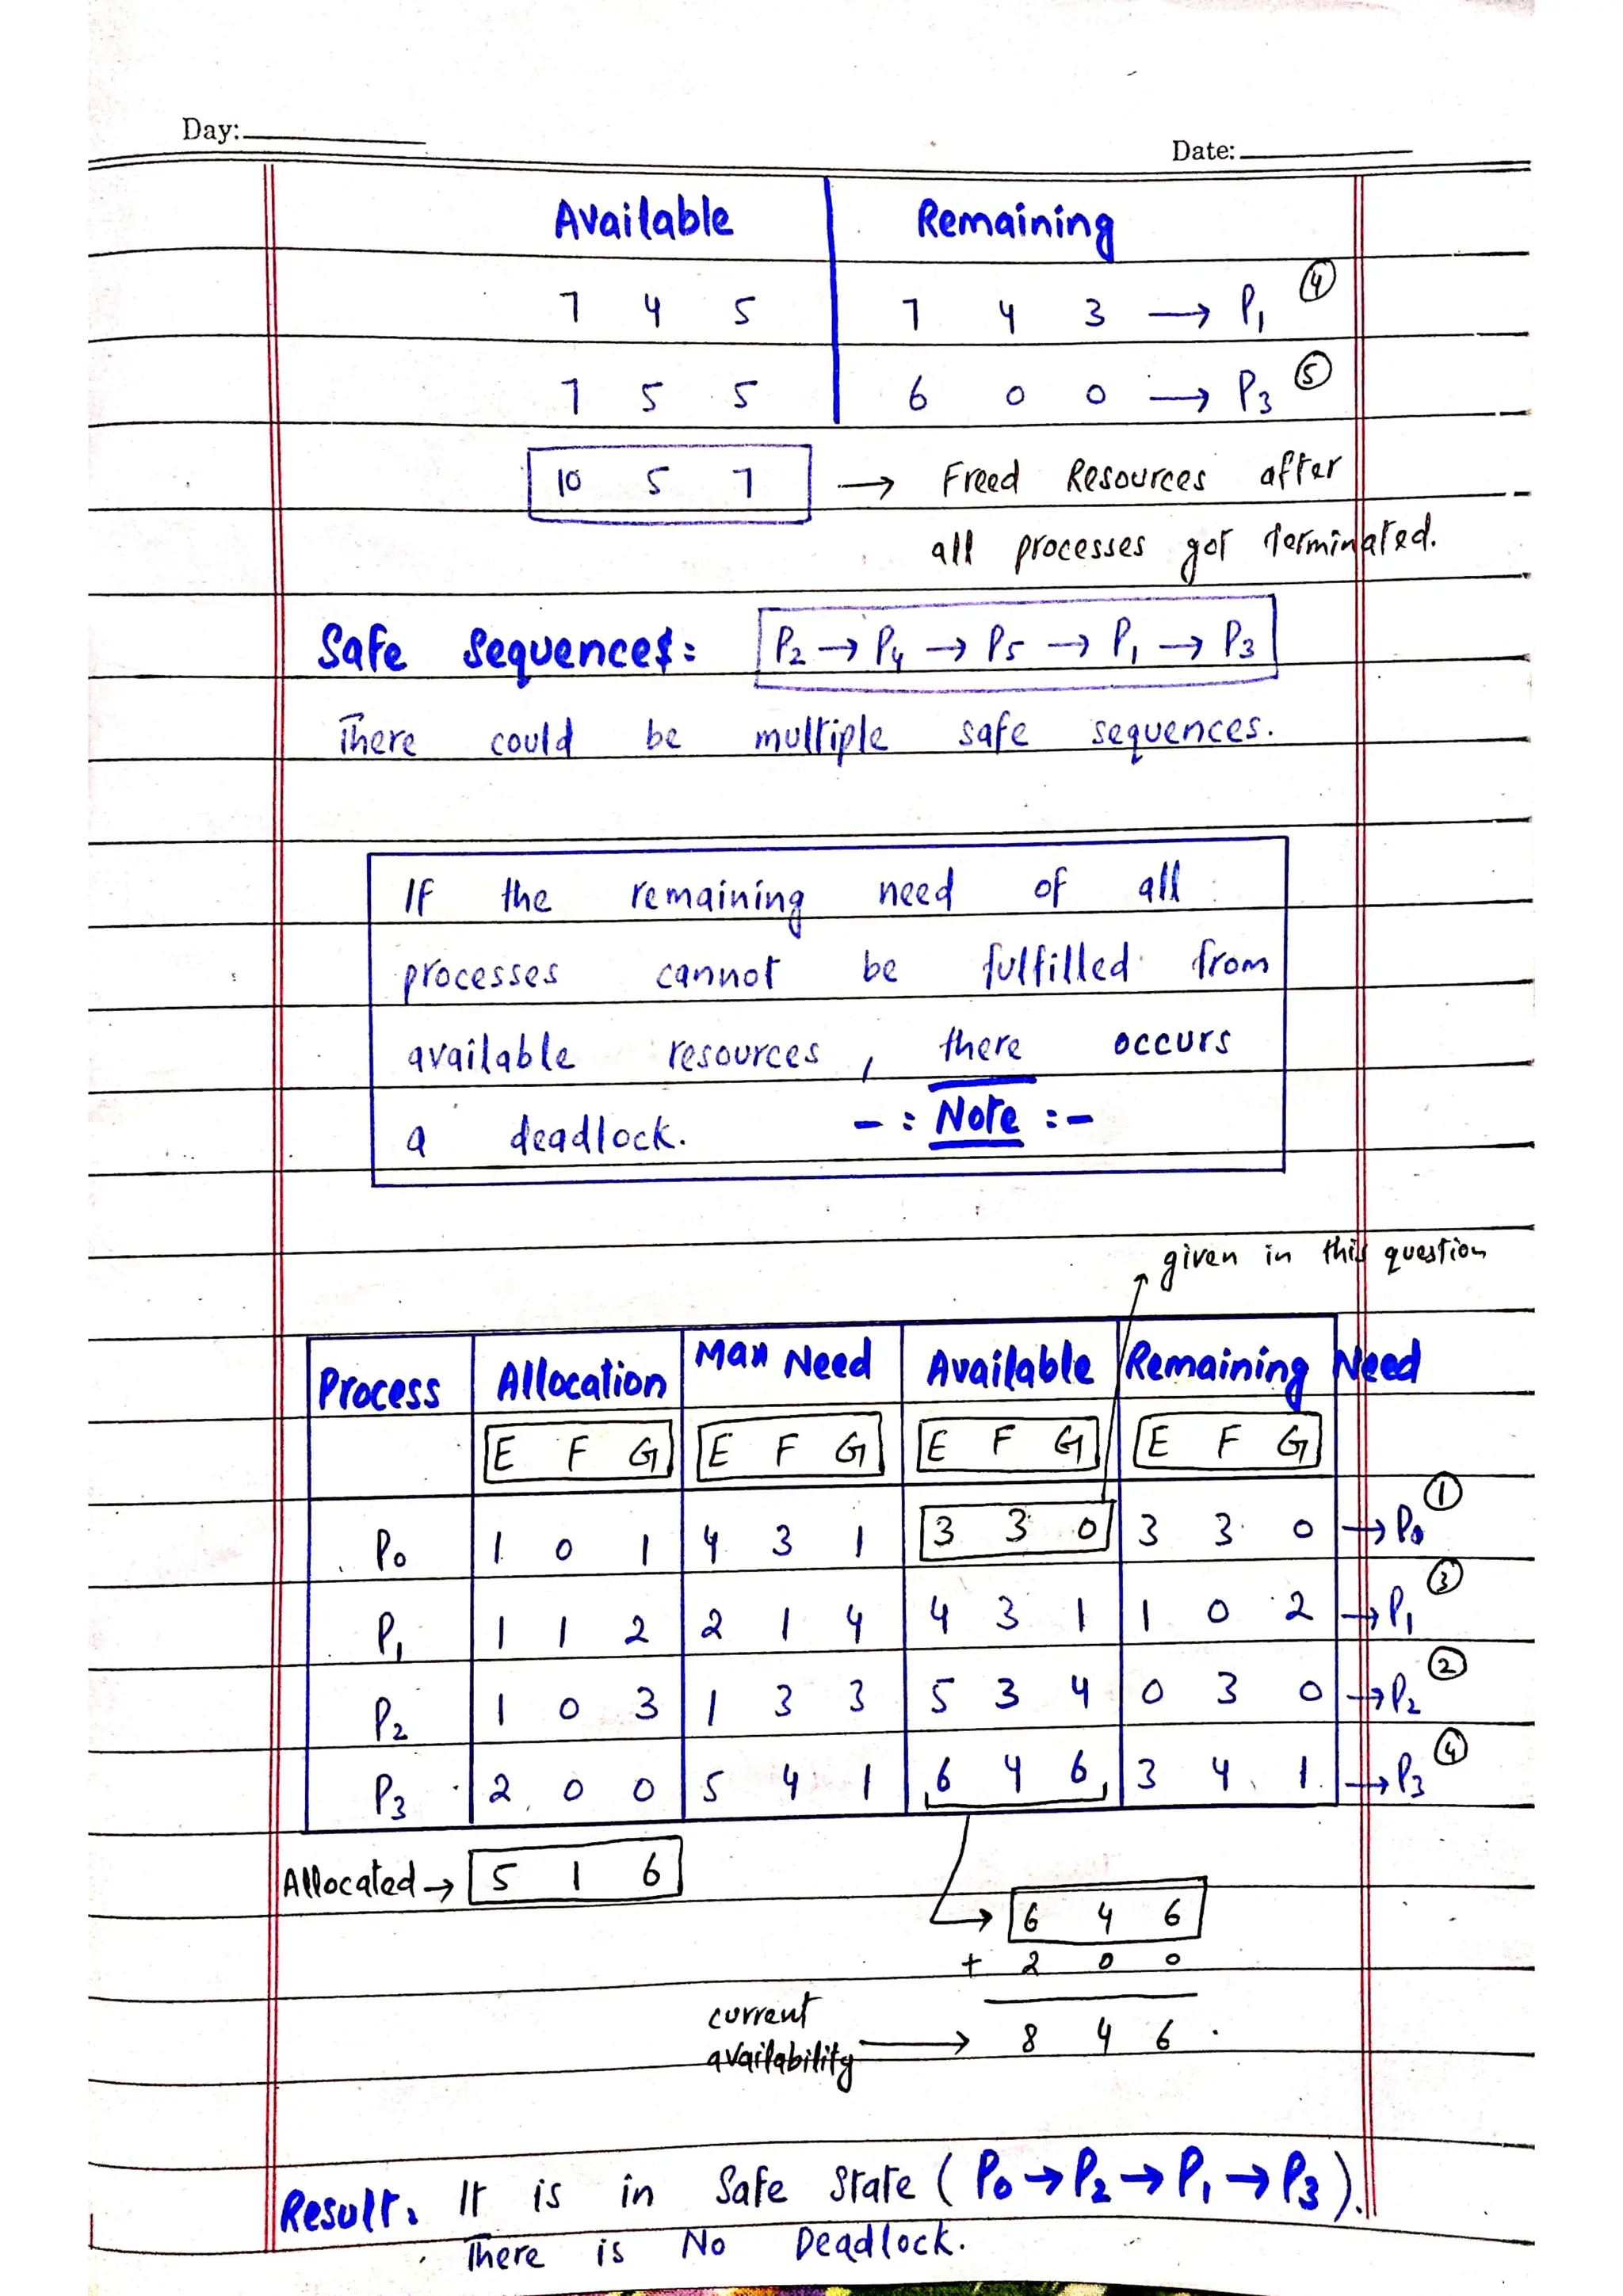 Day:
Date:
Available Remaining
7 4 5 7 4 3 → P1 ④
7 5 5 6 0 0 → P3 ⑤
10 5 7 → Freed Resources after
all processes got terminated.
Safe Sequences: P2 → P4 → P5 → P1 → P3
There could be multiple safe sequences.
If the remaining need of all
processes cannot be fulfilled from
available resources, there occurs
a deadlock. -: Note :-
given in this question
Process Allocation Max Need Available Remaining Need
E F G E F G E F G E F G
P0 1 0 1 4 3 1 3 3 0 3 3 0 → P0 ①
P1 1 1 2 2 1 4 4 3 1 1 0 2 → P1 ③
P2 1 0 3 1 3 3 5 3 4 0 3 0 → P2 ②
P3 2 0 0 5 4 1 6 4 6 3 4 1 → P3 ④
Allocated → 5 1 6
→ 6 4 6
+ 2 0 0
current
availability → 8 4 6
Result: It is in Safe State (P0 → P2 → P1 → P3).
There is No Deadlock.